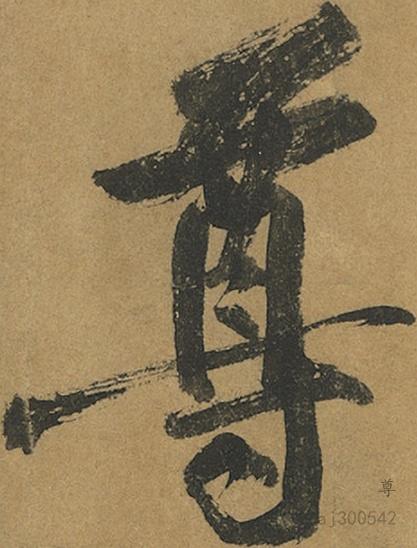 尊
尊
a j300542